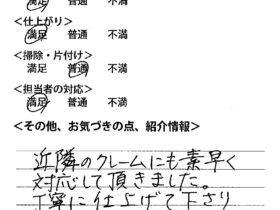 満足 普通 不満
<仕上がり>
満足 普通 不満
<掃除・片付け>
満足 普通 不満
<担当者の対応>
満足 普通 不満
<その他、お気づきの点、紹介情報>
近隣のクレームにも素早く
対応して頂きました。
丁寧に仕上げて下さり